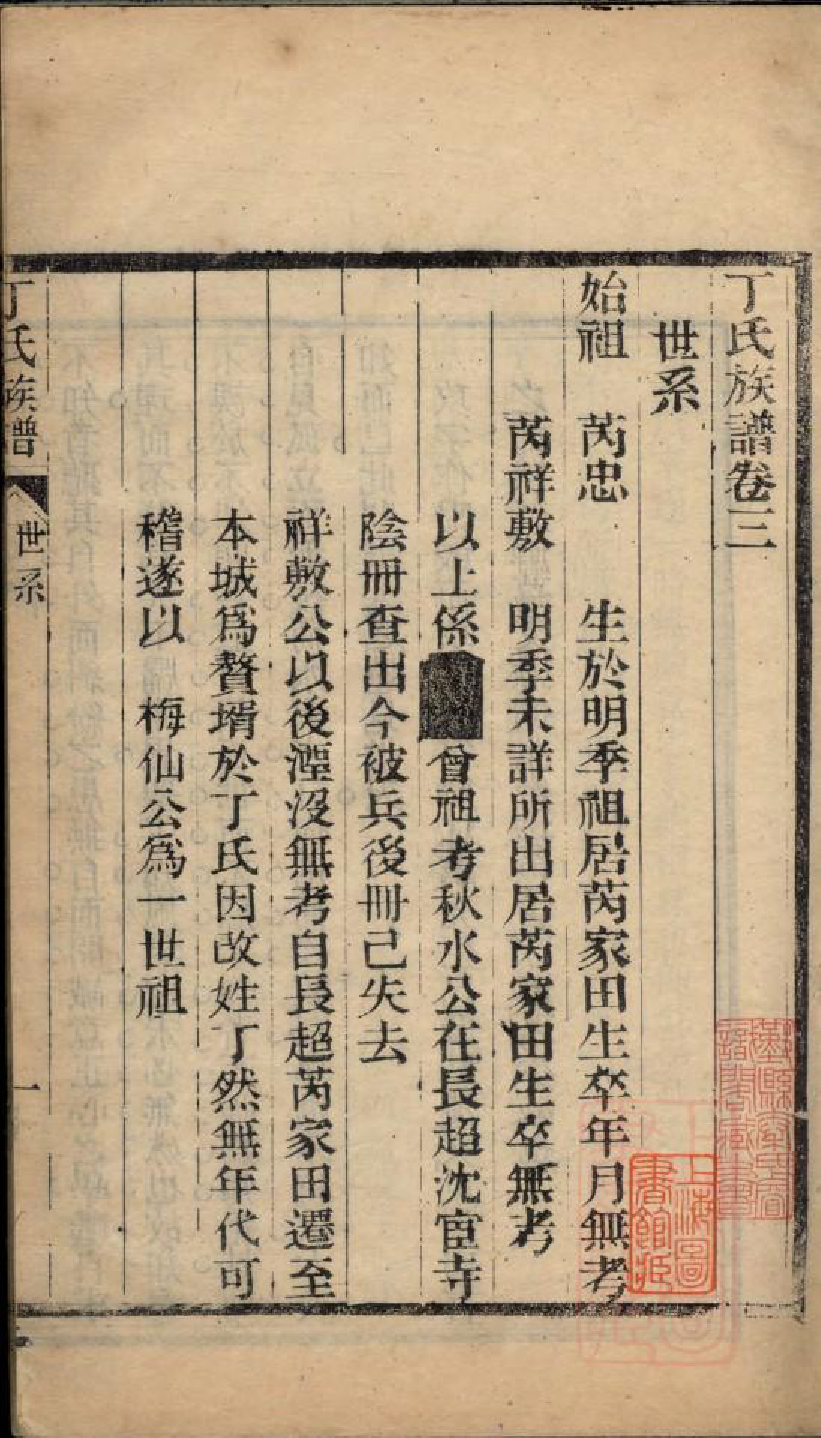 丁氏族譜卷三
世系
始祖 芮忠 生於明季祖居芮家田生卒年月無考
芮祥敷 明季未詳所出居芮家田生卒無考
以上係 曾祖考秋水公在長超沈宦寺
陰冊查出今被兵後冊己失去
祥敷公以後湮沒無考自長超芮家田遷至
本城爲贅壻於丁氏因改姓丁然無年代可
稽遂以 梅仙公爲一世祖
丁氏族譜 世系 一
上海圖書館藏